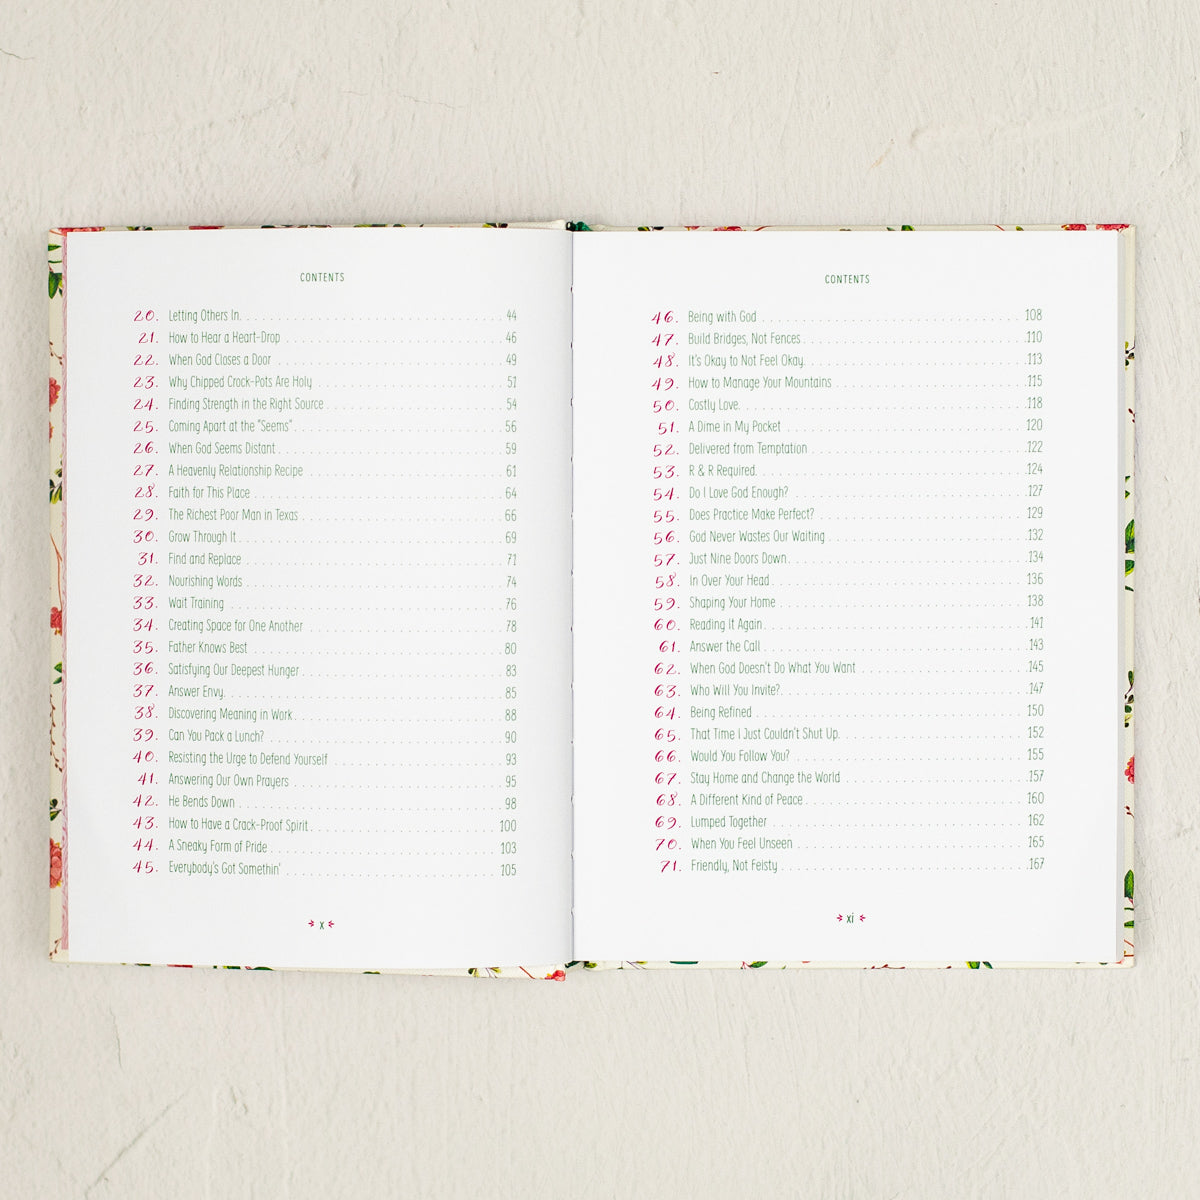 CONTENTS
20. Letting Others In. 44
21. How to Hear a Heart-Drop 46
22. When God Closes a Door 49
23. Why Chipped Crock-Pots Are Holy 51
24. Finding Strength in the Right Source 54
25. Coming Apart at the "Seems" 56
26. When God Seems Distant 59
27. A Heavenly Relationship Recipe 61
28. Faith for This Place 64
29. The Richest Poor Man in Texas 66
30. Grow Through It 69
31. Find and Replace 71
32. Nourishing Words 74
33. Wait Training 76
34. Creating Space for One Another 78
35. Father Knows Best 80
36. Satisfying Our Deepest Hunger 83
37. Answer Envy. 85
38. Discovering Meaning in Work 88
39. Can You Pack a Lunch? 90
40. Resisting the Urge to Defend Yourself 93
41. Answering Our Own Prayers 95
42. He Bends Down 98
43. How to Have a Crack-Proof Spirit 100
44. A Sneaky Form of Pride 103
45. Everybody's Got Somethin' 105
x
CONTENTS
46. Being with God 108
47. Build Bridges, Not Fences 110
48. It's Okay to Not Feel Okay. 113
49. How to Manage Your Mountains 115
50. Costly Love. 118
51. A Dime in My Pocket 120
52. Delivered from Temptation 122
53. R & R Required. 124
54. Do I Love God Enough? 127
55. Does Practice Make Perfect? 129
56. God Never Wastes Our Waiting 132
57. Just Nine Doors Down 134
58. In Over Your Head 136
59. Shaping Your Home 138
60. Reading It Again 141
61. Answer the Call 143
62. When God Doesn't Do What You Want 145
63. Who Will You Invite? 147
64. Being Refined 150
65. That Time I Just Couldn't Shut Up. 152
66. Would You Follow You? 155
67. Stay Home and Change the World 157
68. A Different Kind of Peace 160
69. Lumped Together 162
70. When You Feel Unseen 165
71. Friendly, Not Feisty 167
xi